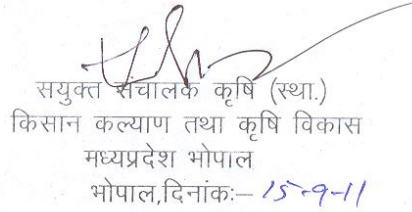 सयुक्त संचालक कृषि (स्था.)
किसान कल्याण तथा कृषि विकास
मध्यप्रदेश भोपाल
भोपाल,दिनांकः– 15-9-11